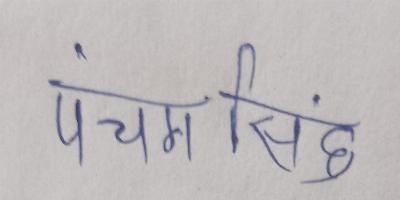 पंचम सिंह